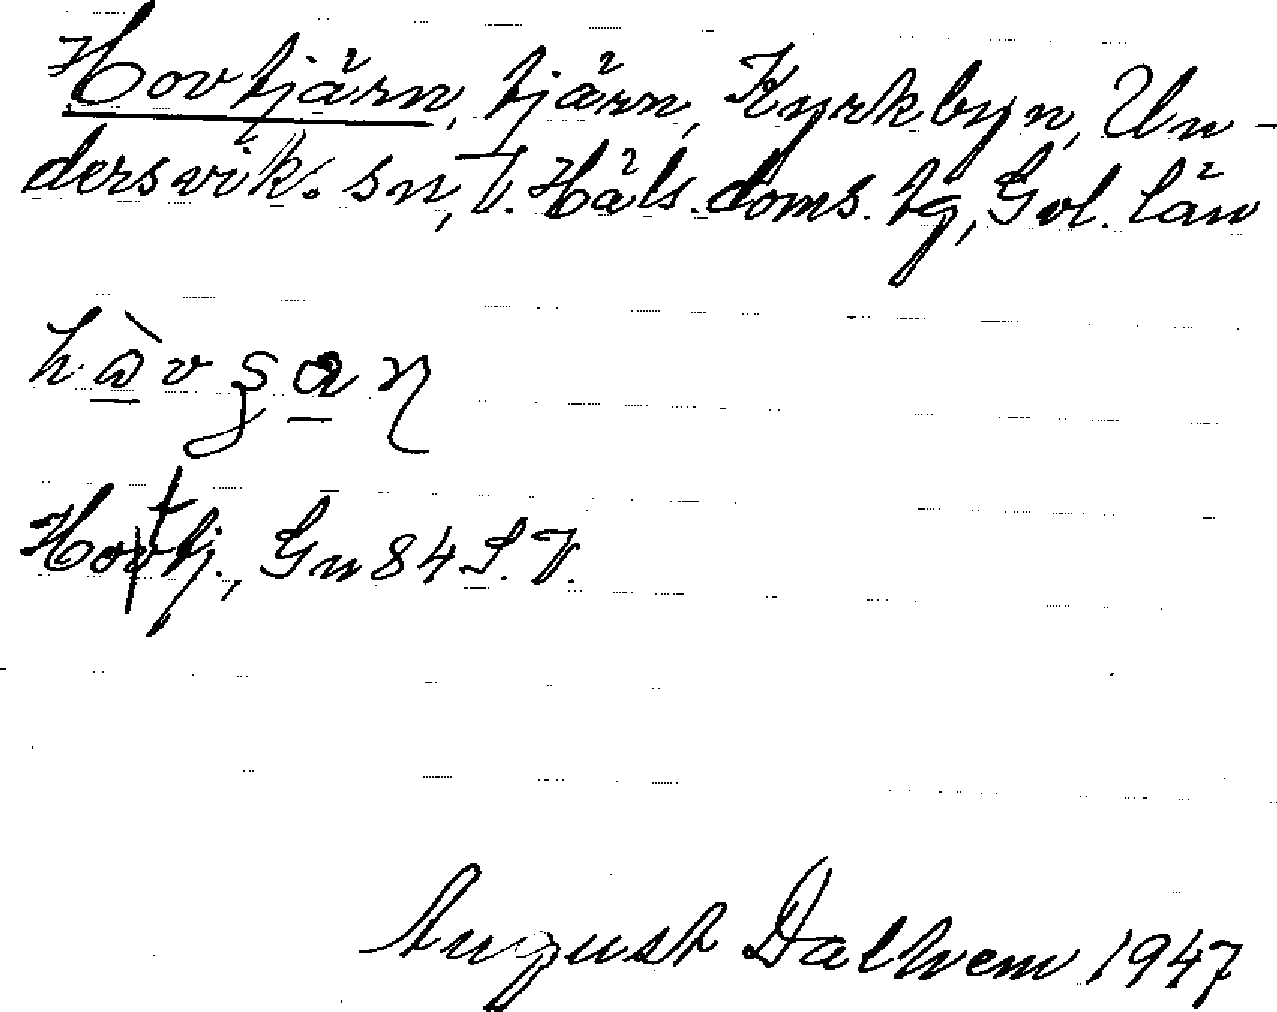 Hovtjärn, tjärn, Kyrkbyn, Un-
dersvik. sn, V. Häls. doms. tg, Gvl. län
Hovtj., Gn 84 S. V.
August Dalhvem 1947